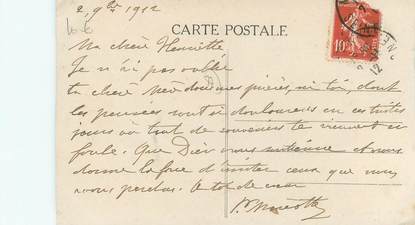 2 9bre 1912
CARTE POSTALE
10
Ma chère Henriette
Je n'ai pas oublié
ta chère Mère dans mes prières, ni toi, dont
les pensées sont si douloureuses en ces tristes
jours où tant de souvenirs te viennent en
foule. Que Dieu vous soutienne et nous
donne la force d'imiter ceux que nous
avons perdus. A toi de cœur